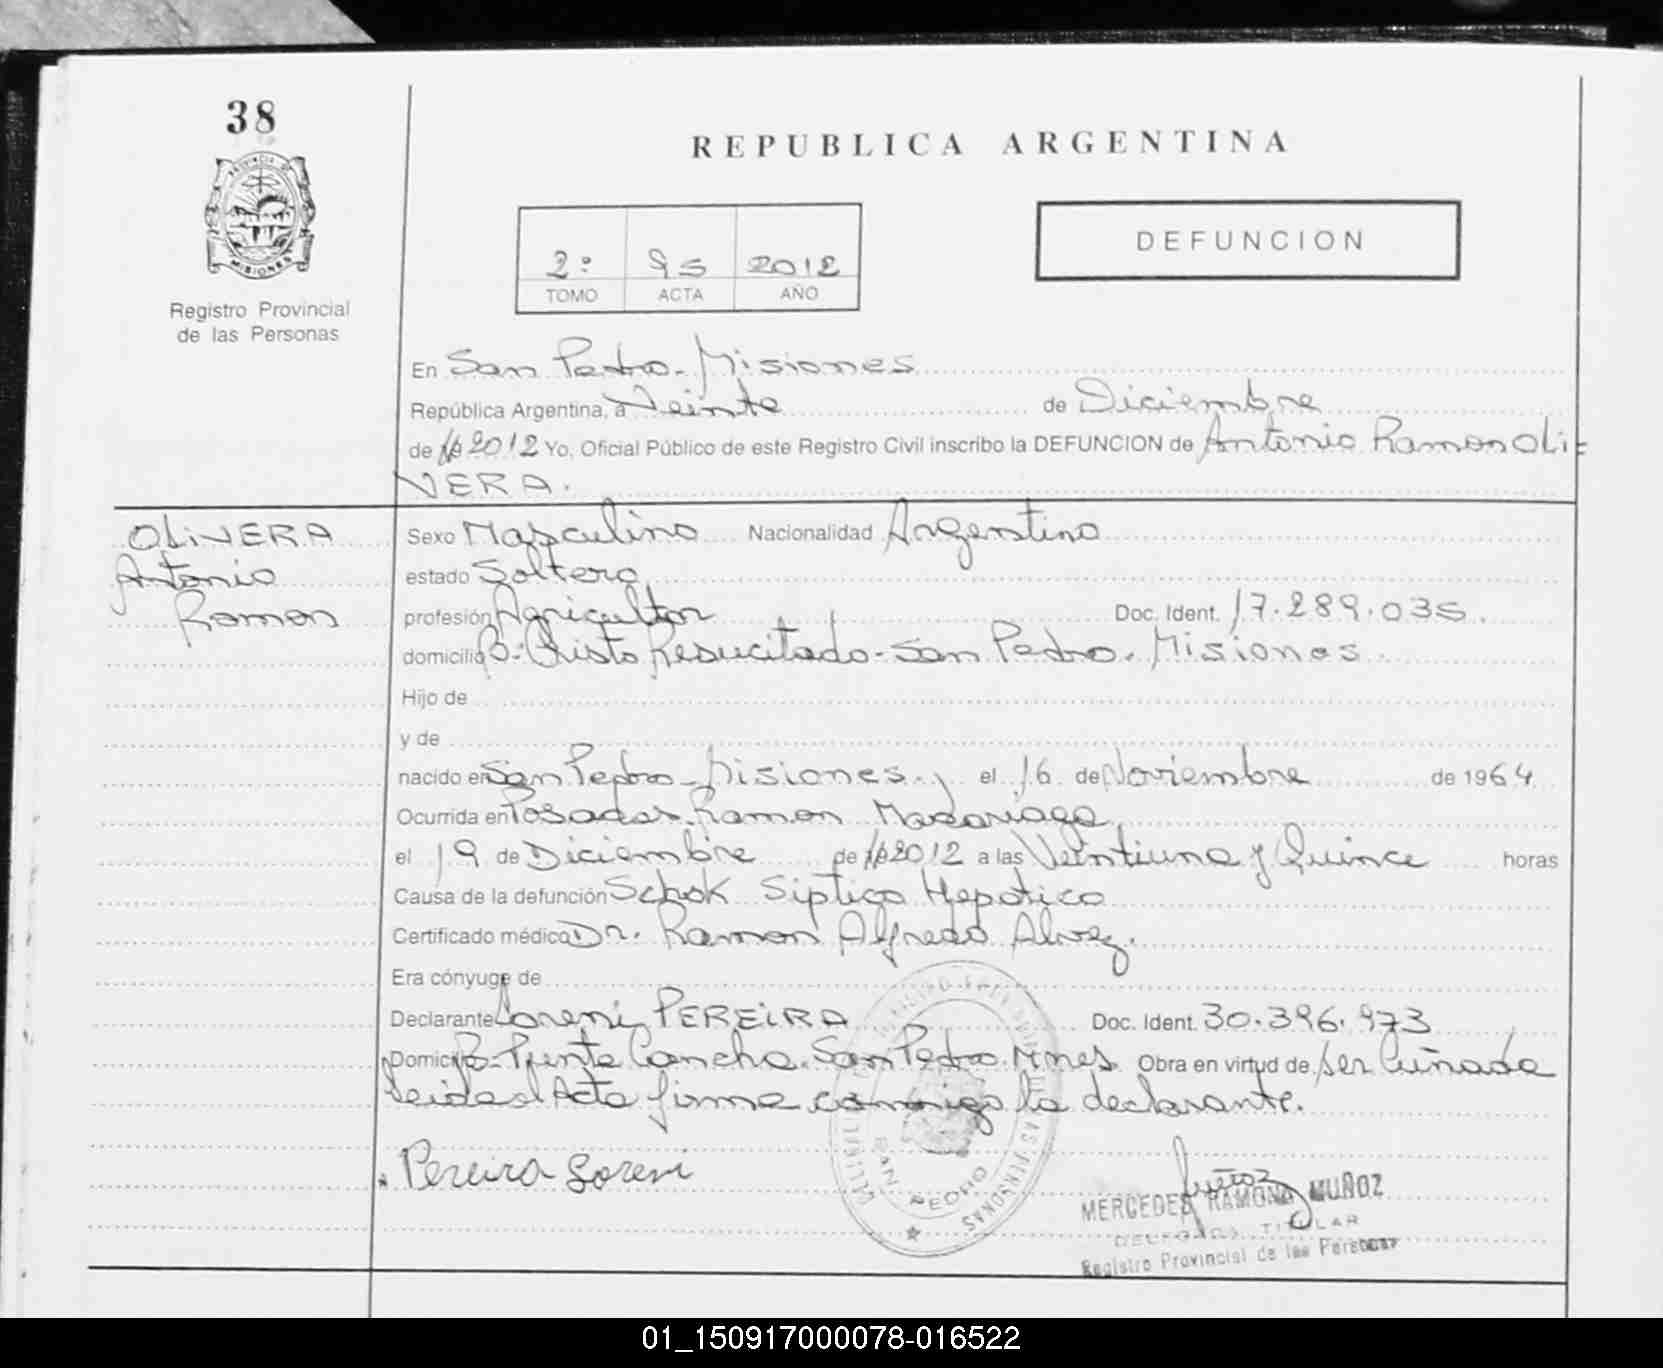 38
REPUBLICA ARGENTINA
PROVINCIA DE
MISIONES
Registro Provincial
de las Personas
2º 95 2012
TOMO ACTA AÑO
DEFUNCION
En San Pedro - Misiones
República Argentina, a Veinte de Diciembre
de 2012 Yo, Oficial Público de este Registro Civil inscribo la DEFUNCION de Antonio Ramon OLi-
VERA.
OLiVERA
Antonio
Ramon
Sexo Masculino Nacionalidad Argentino
estado Soltero
profesión Agricultor Doc. Ident. 17.289.035.
domicilio Bº Cristo Resucitado - San Pedro. Misiones
Hijo de
y de
nacido en San Pedro - Misiones., el 16 de Noviembre de 1964
Ocurrida en Posadas. Ramon Madariaga
el 19 de Diciembre de 2012 a las Veintiuna y Quince horas
Causa de la defunción Schok Siptico Hepatico
Certificado médico Dr. Ramon Alfredo Alvez.
Era cónyuge de
Declarante Loreni PEREiRA Doc. Ident. 30.396.973
Domicilio Bº Puente Cancha. San Pedro. Mnes Obra en virtud de ser Cuñada
leida el Acta firma conmigo la declarante.
Pereira Loreni
SAN PEDRO
MERCEDES RAMONA MUÑOZ
DELEGADA TITULAR
Registro Provincial de las Personas
01_150917000078-016522